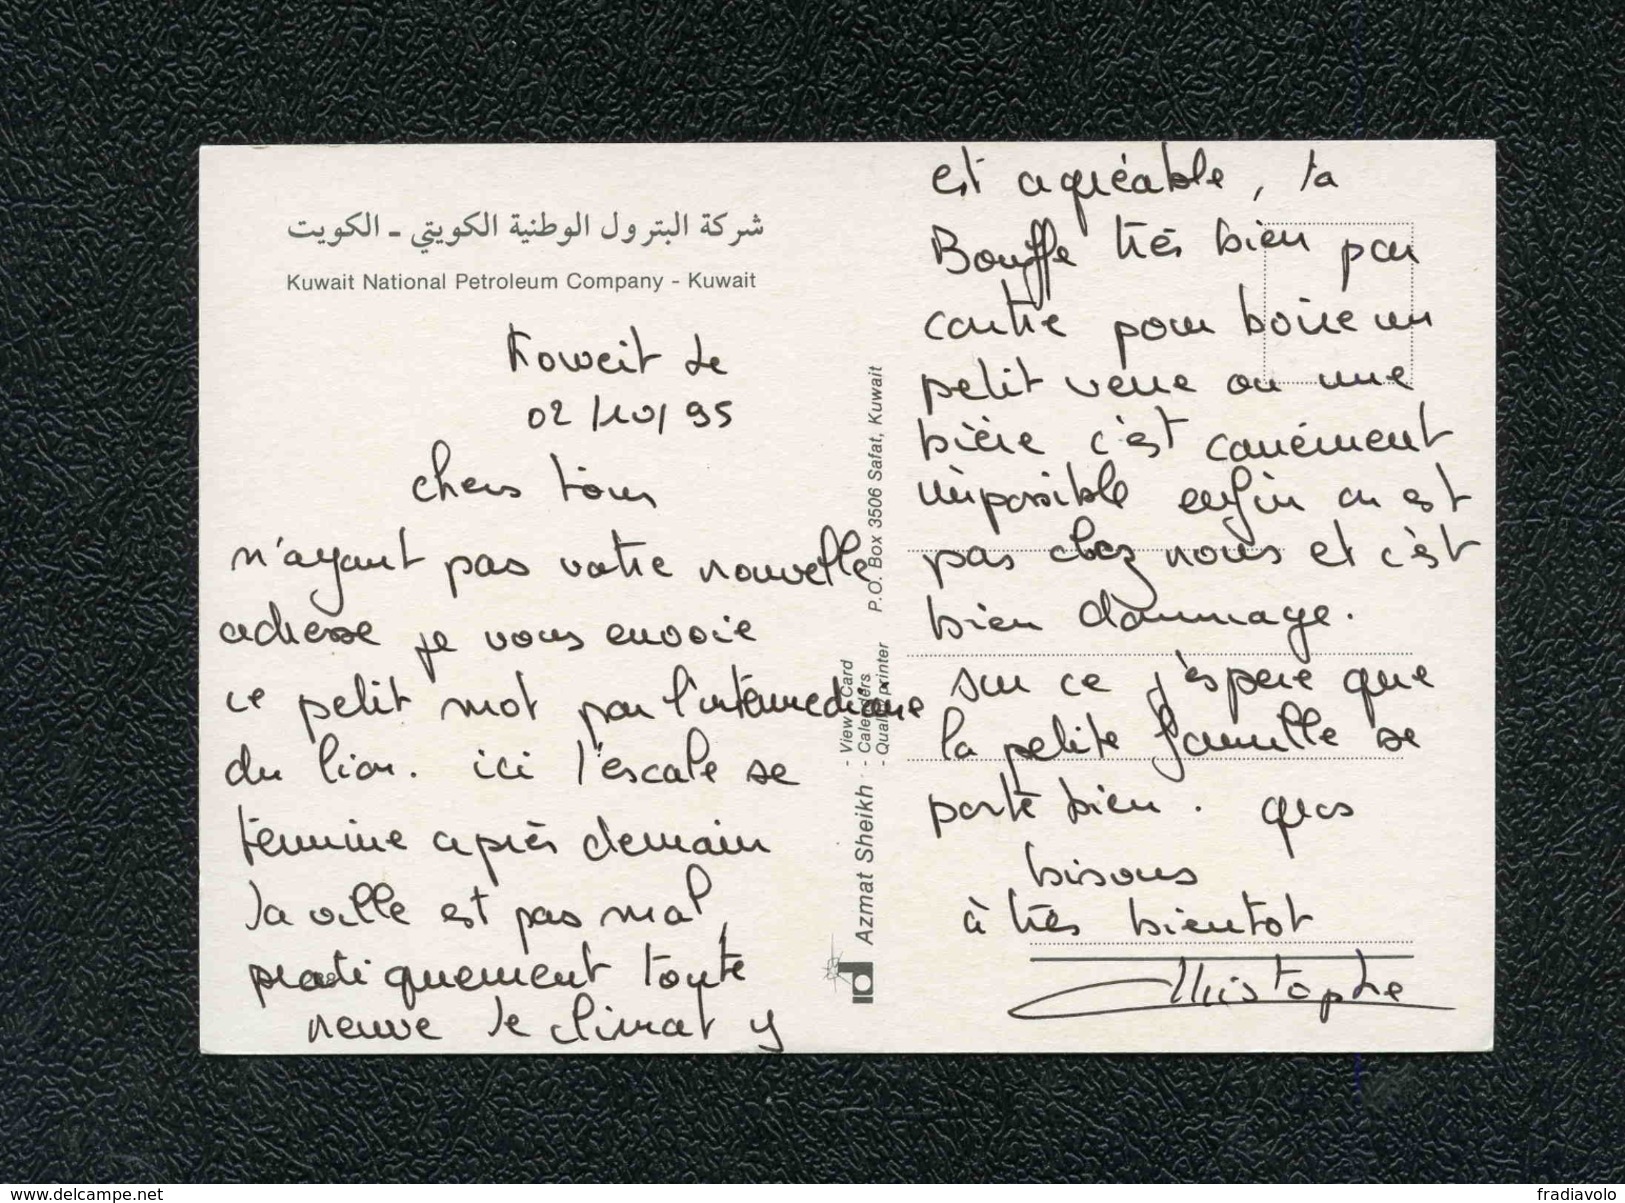 شركة البترول الوطنية الكويتي ـ الكويت
Kuwait National Petroleum Company - Kuwait
Koweit le
02/10/95
chers tous
n'ayant pas votre nouvelle
adresse je vous envoie
ce petit mot par l'intermediaire
du lion. ici l'escale se
termine après demain
la ville est pas mal,
pratiquement toute
neuve le climat y
Azmat Sheikh
- View Card
- Calenders
- Quality printer
P.O. Box 3506 Safat, Kuwait
est agréable, la
Bouffe très bien par
contre pour boire un
petit verre ou une
bière c'est carrément
impossible enfin on est
pas chez nous et c'est
bien dommage.
sur ce j'espere que
la petite famille se
porte bien. gros
bisous
à très bientot
Christophe
www.delcampe.net
fradiavolo